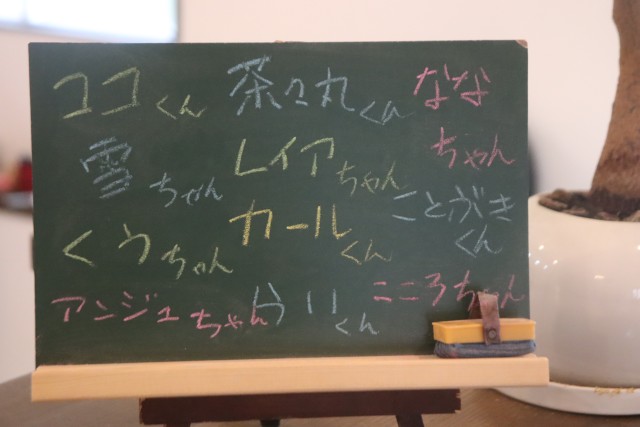 ココくん 茶々丸くん なな
雪ちゃん レイアちゃん ちゃん
くうちゃん カールくん ことがきくん
アンジュちゃん うりくん こころちゃん